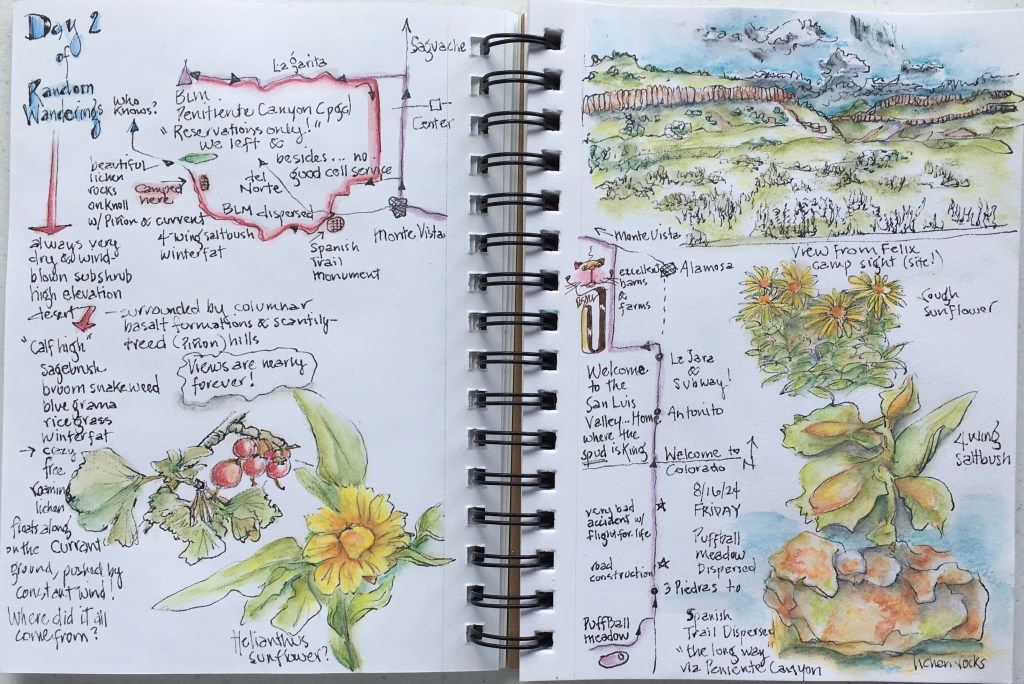 Day 2
of
Random
Wanderings
Who
Knows?
La Garita
Saguache
BLM
Penitiente Canyon Cpgd
"Reservations only!"
we left &
besides... no
good cell service
Center
beautiful
lichen
rocks
on knoll
w/ Piñon & current
Camped
here
del
Norte
BLM dispersed
4 wing saltbush
winterfat
Spanish
Trail
monument
Monte Vista
always very
dry & wind
blown subshrub
high elevation
desert
- surrounded by columnar
basalt formations & scantily-
treed (Piñon) hills
"Calf high"
sagebrush
broom snakeweed
blue grama
ricegrass
winterfat
→ crazy
free
roaming
lichen
floats along
on the
ground, pushed by
constant wind!
Where did it all
come from?
Views are nearly
forever!
Currant
Helianthus
sunflower?
View from Felix
camp sight (site!)
Monte Vista
excellent
barns
&
farms
Alamosa
rough
sunflower
La Jara
&
Subway!
Welcome
to the
San Luis
Valley... Home
where the
spud is King
Antonito
Welcome to
Colorado
N
4 wing
saltbush
8/16/24
FRIDAY
very bad
accident w/
flight for life
Puffball
meadow
Dispersed
road
construction
3 Piedras to
Spanish
Trail Dispersed
"the long way"
via Peniente Canyon
Puffball
meadow
lichen rocks